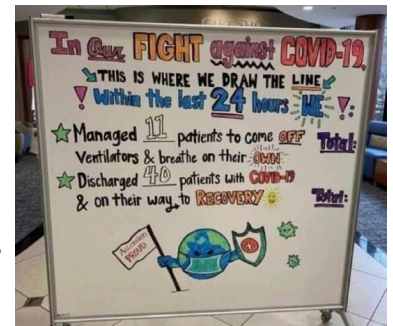 In Our FIGHT against COVID-19,
THIS IS WHERE WE DRAW THE LINE
! Within the last 24 hours WE !:
Managed 11 patients to come OFF Total:
Ventilators & breathe on their OWN
Discharged 40 patients with COVID-19 Total:
& on their way to RECOVERY
Ascension
PROUD